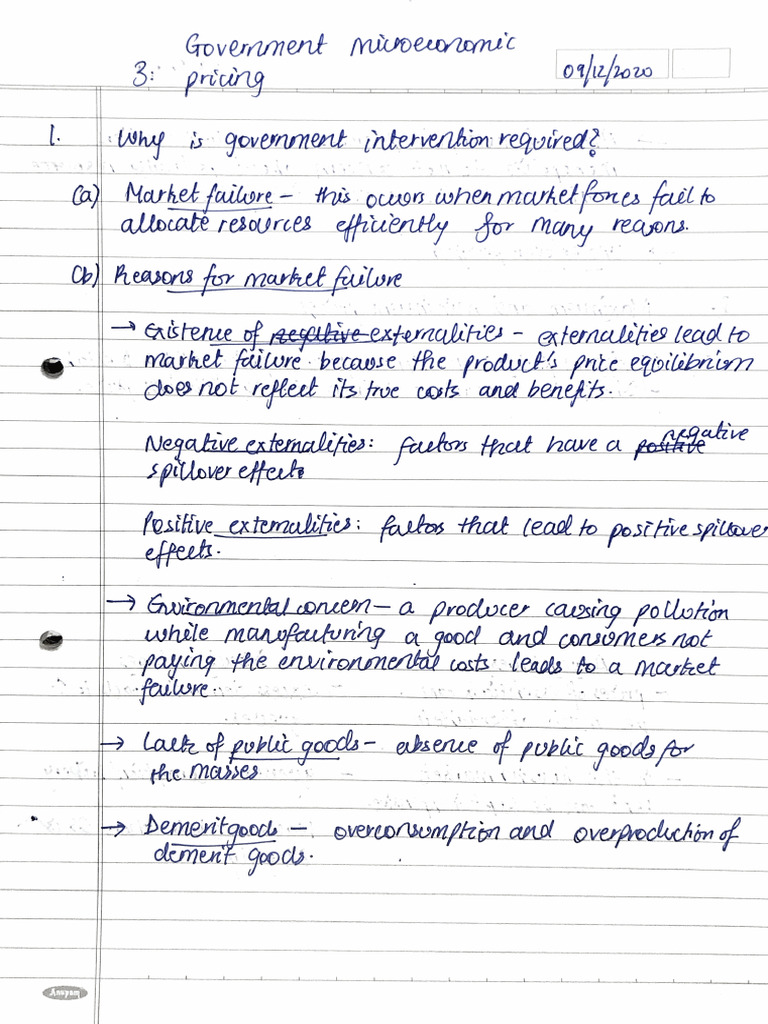 Government microeconomic
3: pricing
09/12/2020
1. Why is government intervention required?
(a) Market failure – this occurs when market forces fail to
allocate resources efficiently for many reasons.
(b) Reasons for market failure
→ Existence of negative externalities – externalities lead to
market failure because the product's price equilibrium
does not reflect its true costs and benefits.
negative
Negative externalities: factors that have a positive
spillover effect.
Positive externalities: factors that lead to positive spillover
effects.
→ Environmental concern – a producer causing pollution
while manufacturing a good and consumers not
paying the environmental costs leads to a market
failure.
→ Lack of public goods – absence of public goods for
the masses
→ Demerit goods – overconsumption and overproduction of
demerit goods.
Anupam